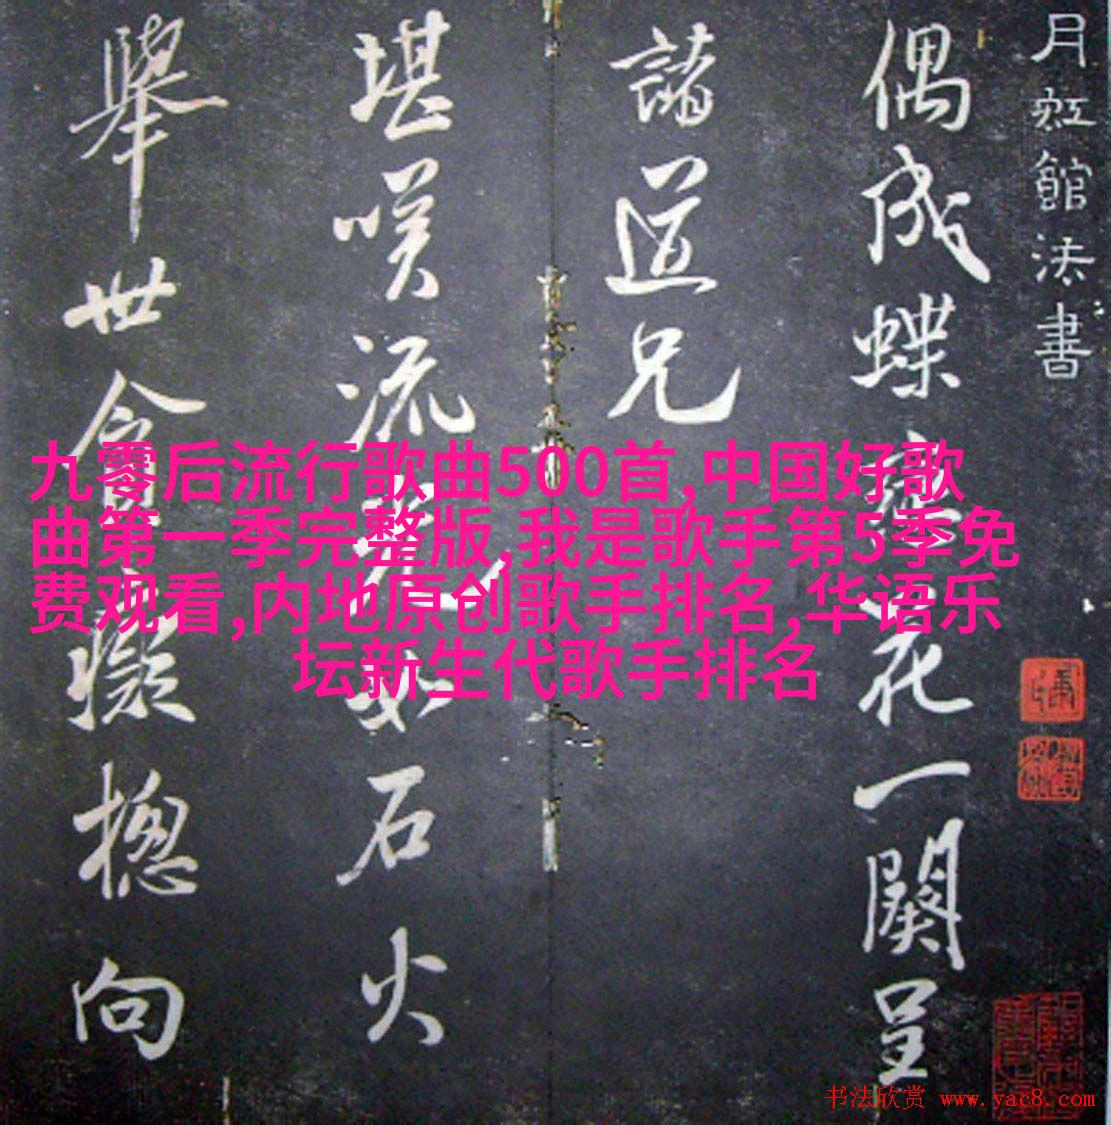 月虹館法書
偶成蝶戀花一闋呈
諸道兄
堪嘆流光如石火
舉世人貪癡摠向
九零后流行歌曲500首,中国好歌
曲第一季完整版,我是歌手第5季免
费观看,内地原创歌手排名,华语乐
坛新生代歌手排名
书法欣赏 www.yac8.com